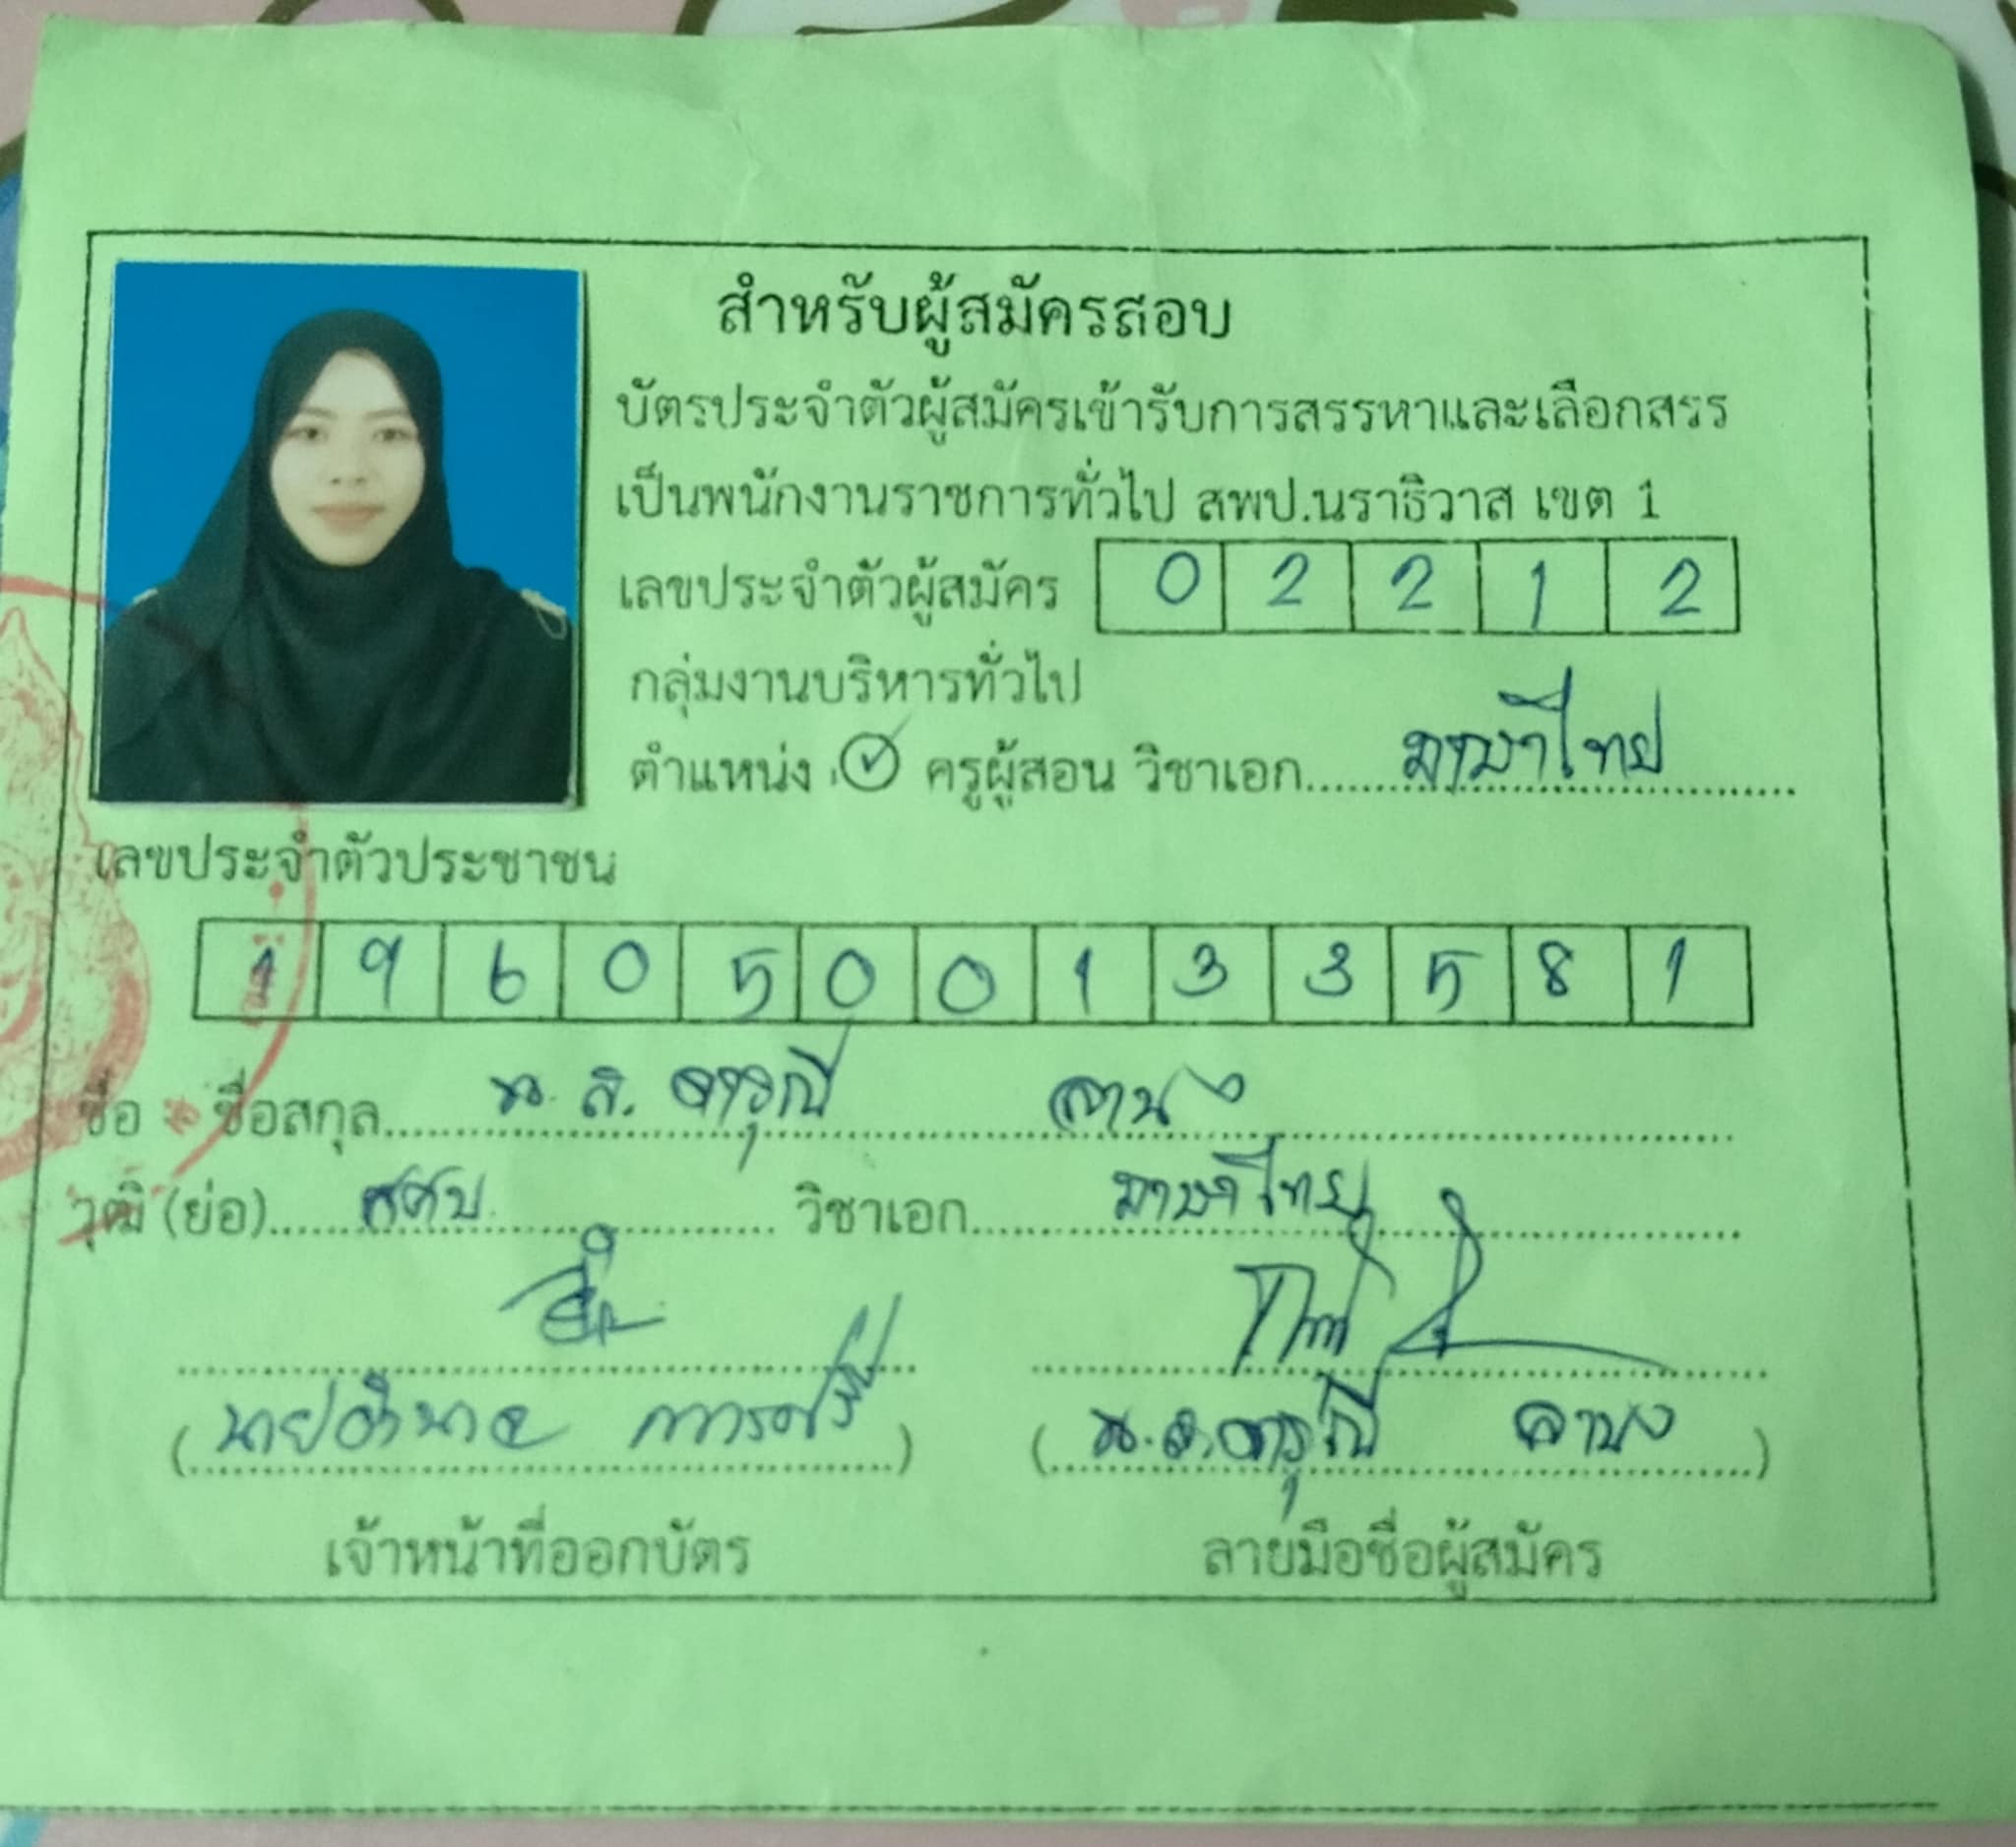 สำหรับผู้สมัครสอบ
บัตรประจำตัวผู้สมัครเข้ารับการสรรหาและเลือกสรร
เป็นพนักงานราชการทั่วไป สพป.นราธิวาส เขต 1
เลขประจำตัวผู้สมัคร 0 2 2 1 2
กลุ่มงานบริหารทั่วไป
ตำแหน่ง ครูผู้สอน วิชาเอก ภาษาไทย
เลขประจำตัวประชาชน
1 9 6 0 5 0 0 1 3 3 5 8 1
ชื่อ - ชื่อสกุล น.ส. ดารุณี
วุฒิ (ย่อ) ศศบ. วิชาเอก ภาษาไทย
(นายอำนาจ) (น.ส.ดารุณี)
เจ้าหน้าที่ออกบัตร ลายมือชื่อผู้สมัคร